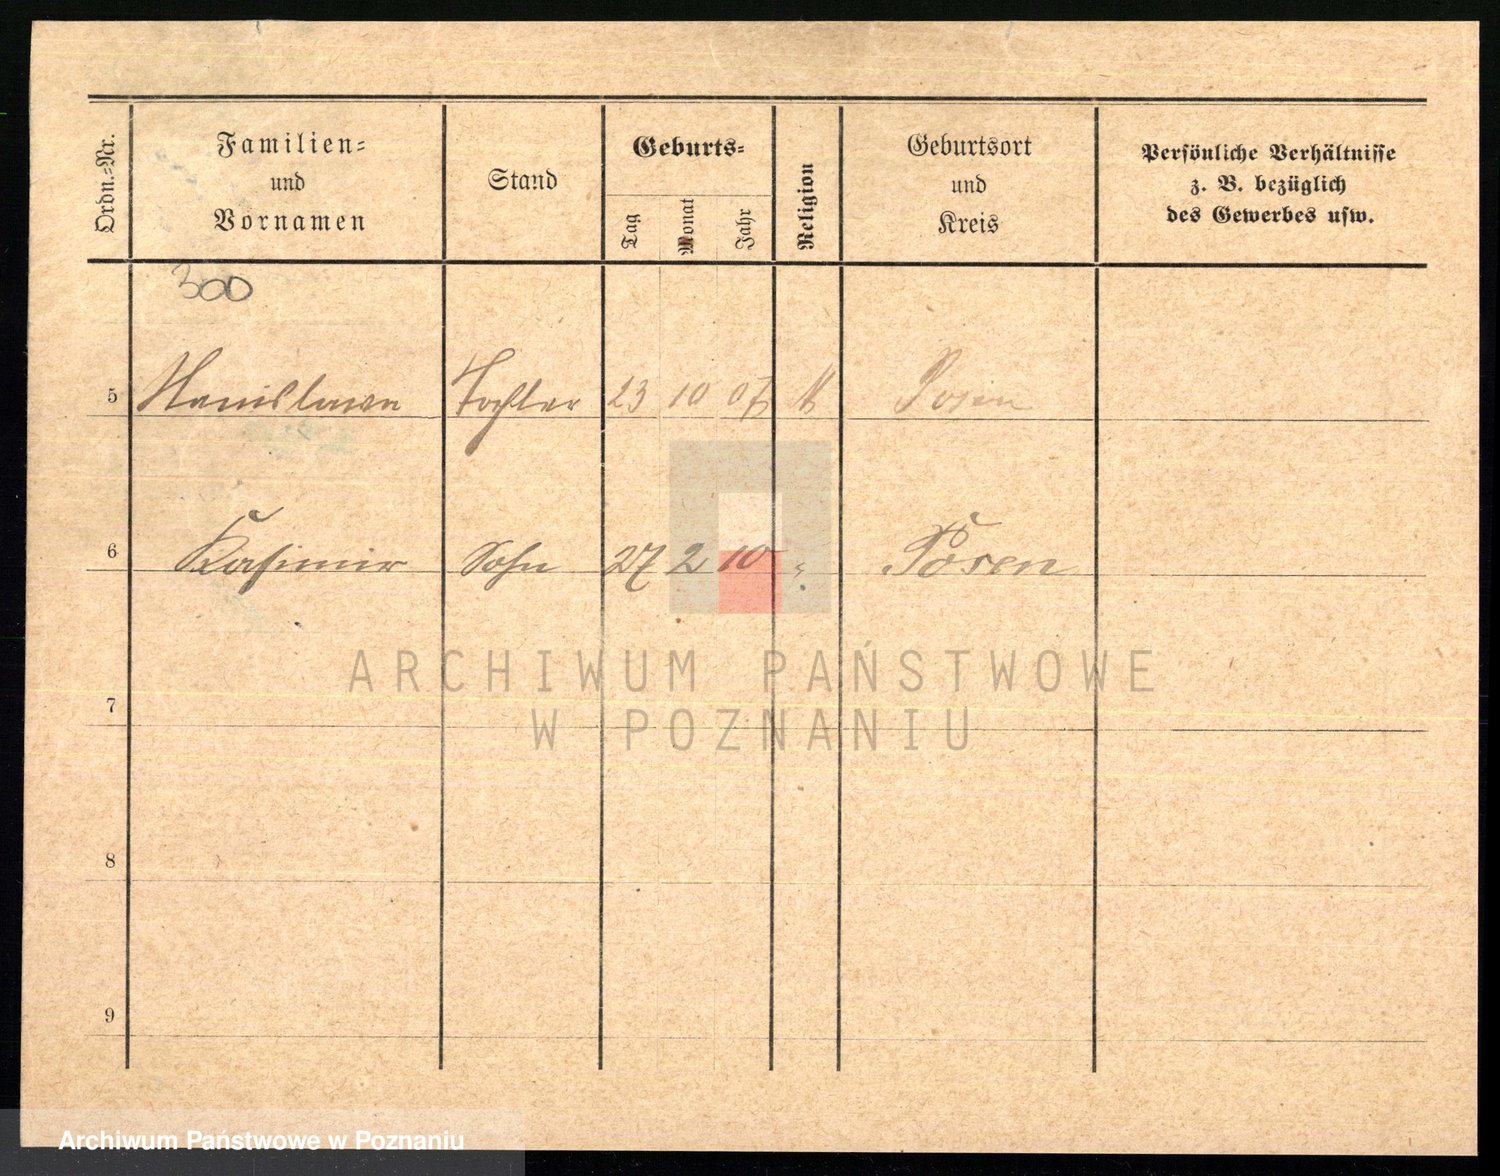 Ordn.-Nr. Familien- und Vornamen Stand Geburts- Tag Monat Jahr Religion Geburtsort und Kreis Persönliche Verhältnisse z. B. bezüglich des Gewerbes usw.
300
5 Stanislawa Tochter 23 10 07 K Posen
6 Kasimir Sohn 27 2 10 " Posen
ARCHIWUM PAŃSTWOWE
W POZNANIU
7
8
9
Archiwum Państwowe w Poznaniu